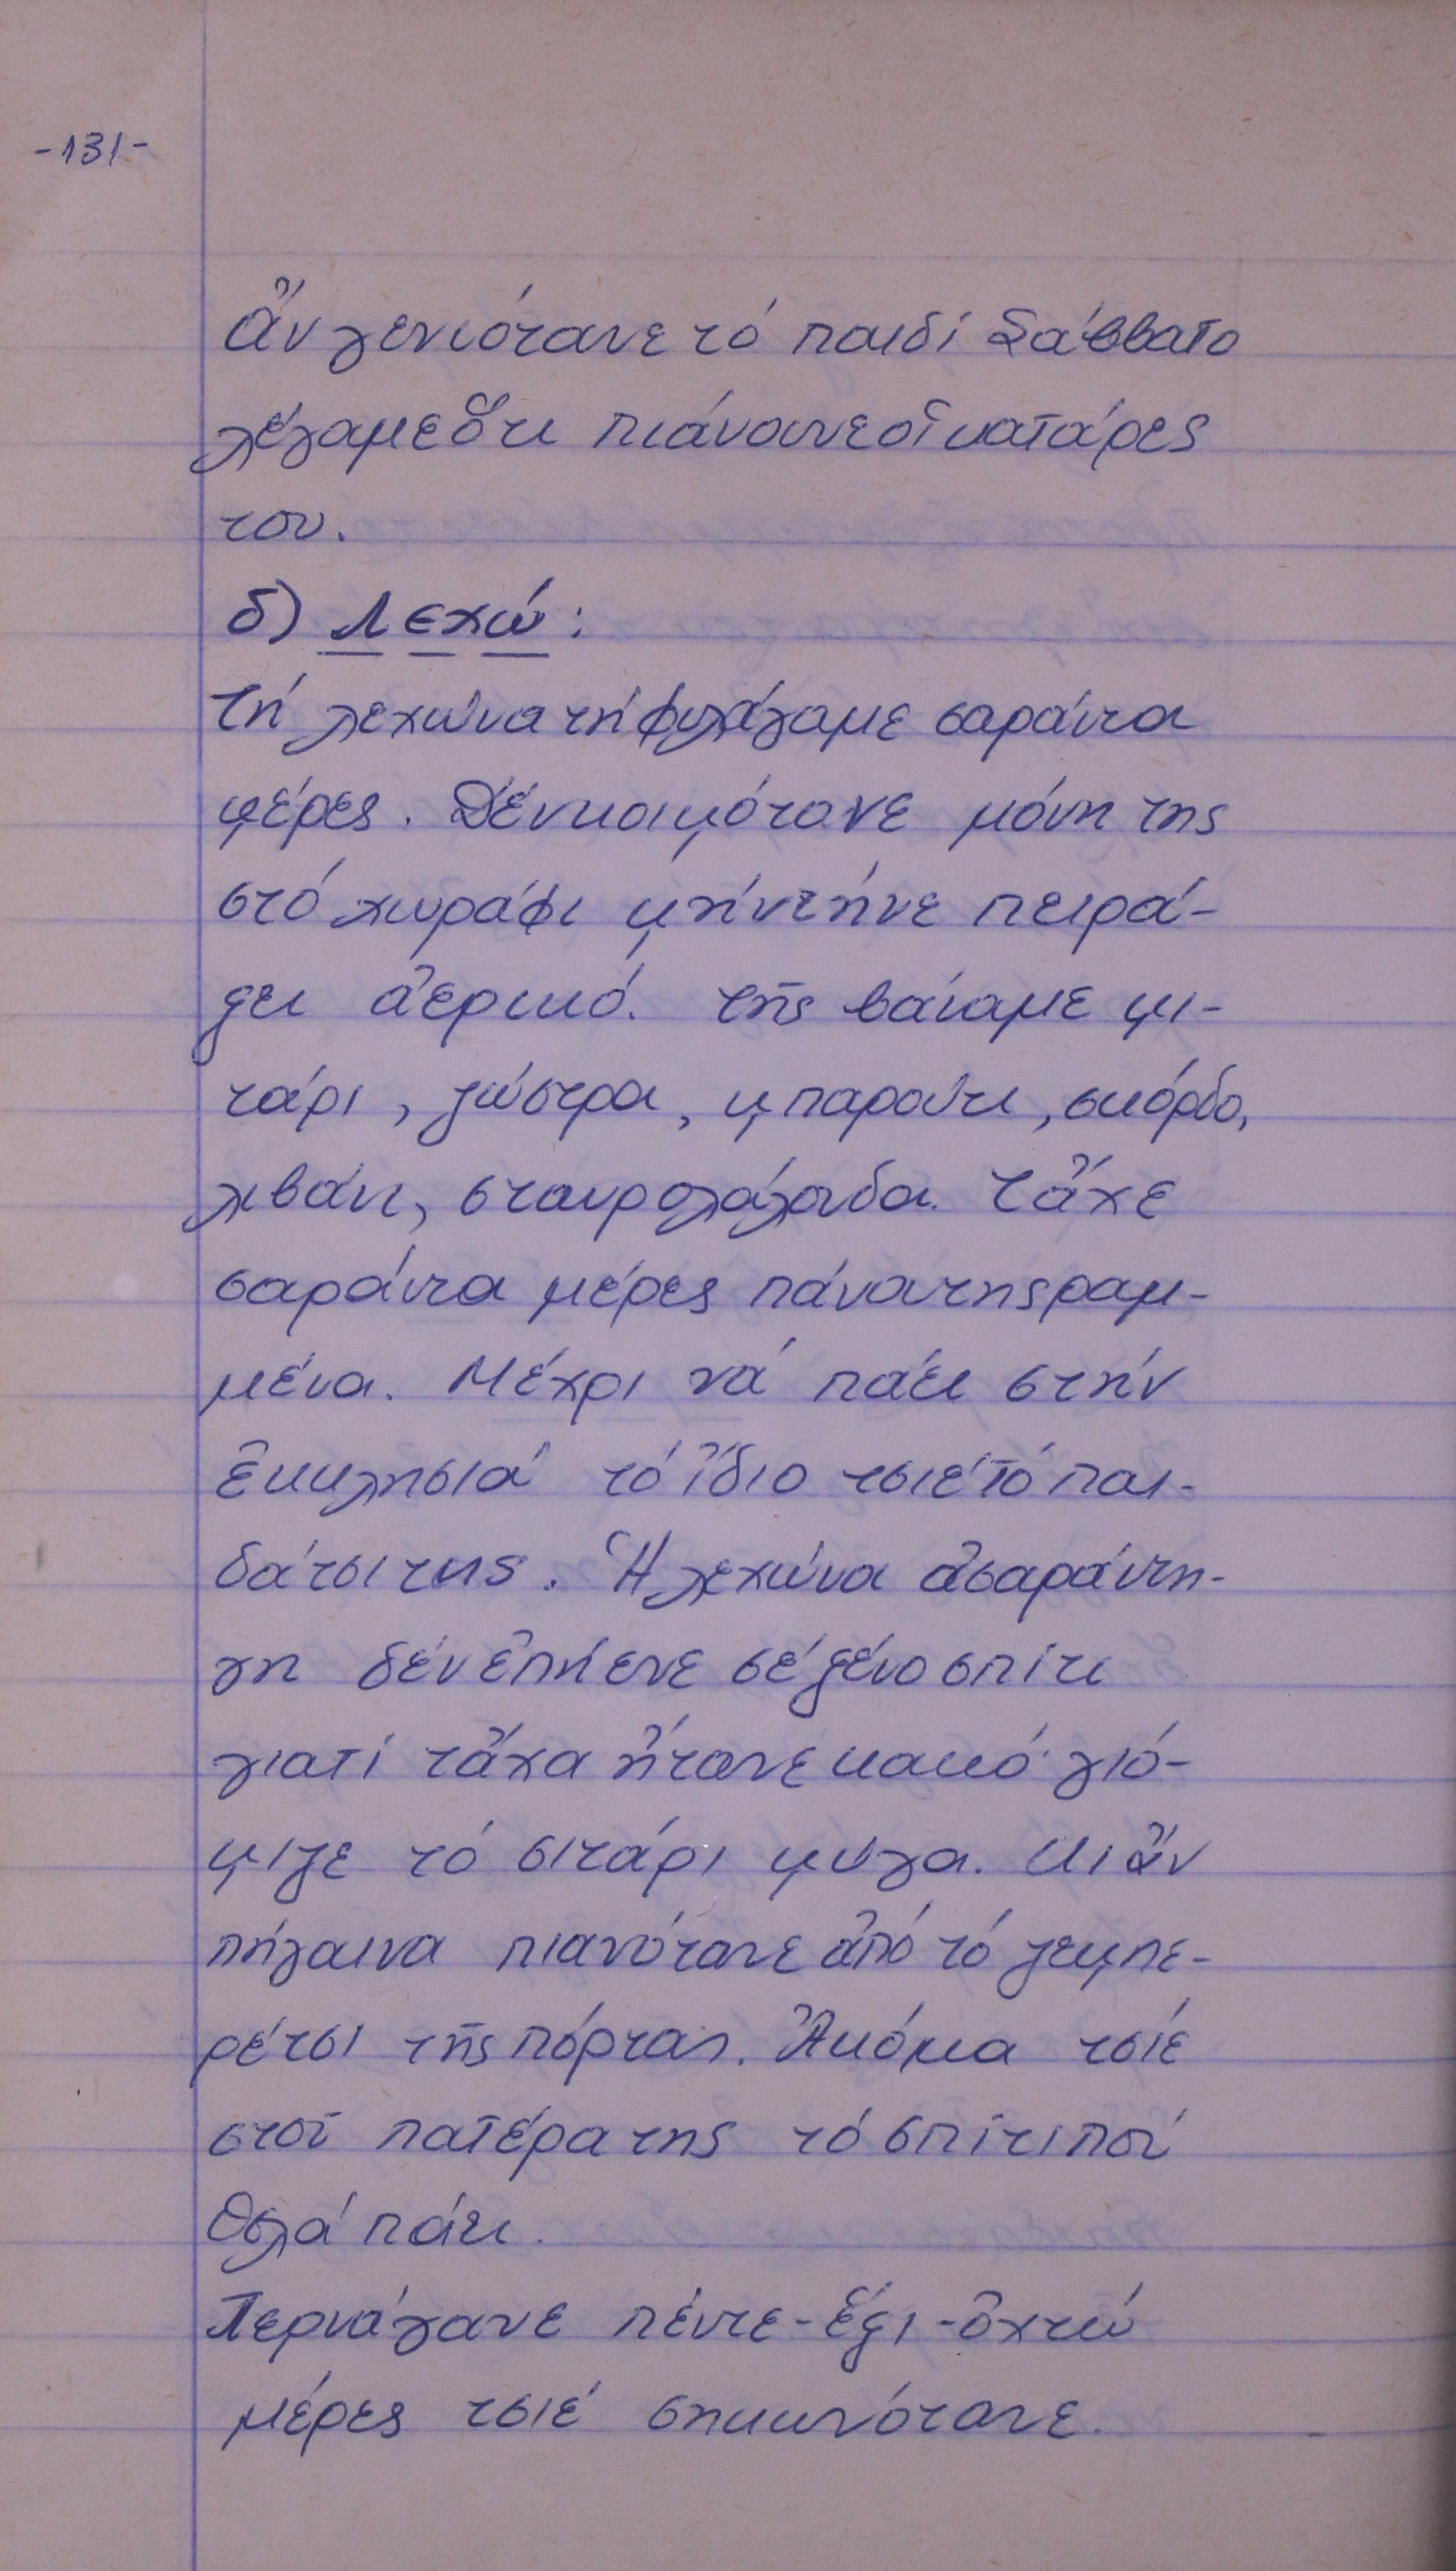 -131-
Ἄν γενιότανε τό παιδί Σάββατο
λέγαμε ὅτι πιάνουνε οἱ κατάρες
του.
δ) Λεχώ:
Τή λεχώνα τή φυλάγαμε σαράντα
μέρες. Δέν κοιμότανε μόνη της
στό χωράφι μήν τήνε πειρά-
ξει ἀερικό. Τῆς βάναμε μι-
τάρι, ζώστρα, μπαρούτι, σκόρδο,
λιβάνι, σταυρολάλουδα. Τἄχε
σαράντα μέρες πάνου της ραμ-
μένα. Μέχρι νά πάει στήν
ἐκκλησιά τό ἴδιο τσιέ τό παι-
δάτσι της. Ἡ λεχώνα ἀσαράντη-
γη δέν ἐπήενε σέ ξένο σπίτι
γιατί τἄχα ἤτανε κακό γιό-
μιζε τό σιτάρι μύγα. Κι ἄν
πήγαινα πιανότανε ἀπό τό ζεμπε-
ρέτσι τῆς πόρτας. Ἀκόμα τσιέ
στοῦ πατέρα της τό σπίτι πού
θελά πάει.
Περνάγανε πέντε-ἕξι-ὀχτώ
μέρες τσιέ σηκωνότανε.